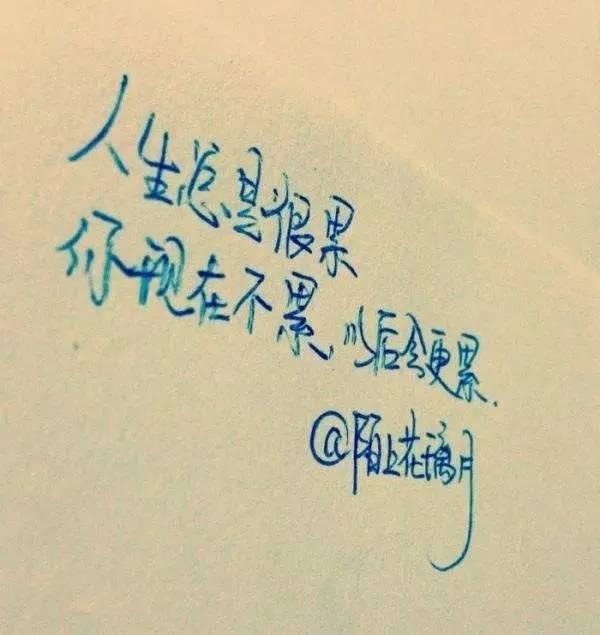 人生总是很累
你现在不累,以后会更累.
@陌上花璃月